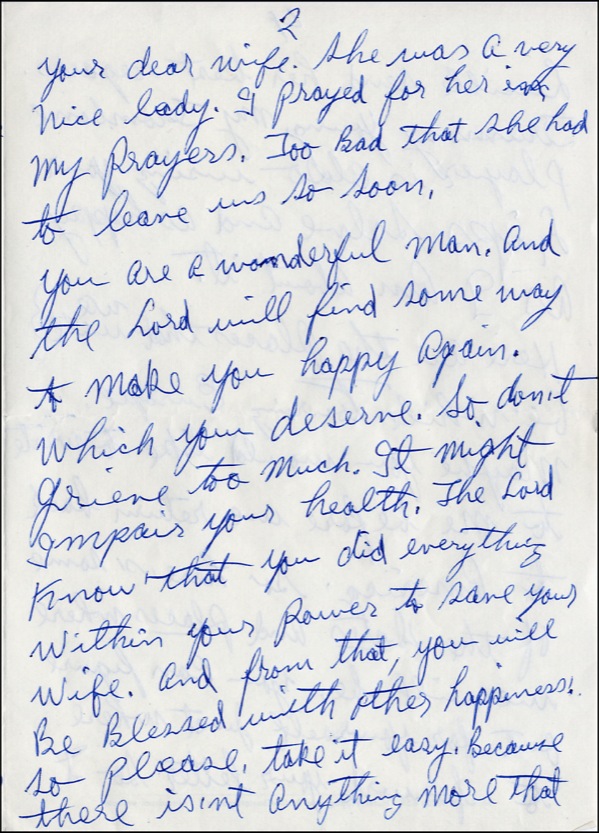 2
your dear wife. She was a very
nice lady. I prayed for her in
my prayers. Too Bad that she had
to leave us so soon,
you are a wonderful man. And
the Lord will find some way
to make you happy again.
which you deserve. So don't
grieve too much. It might
Impair your health. The Lord
Know that you did everything
within your power to save your
wife. And from that, you will
Be Blessed with other happiness.
so Please, take it easy. Because
there isint anything more that